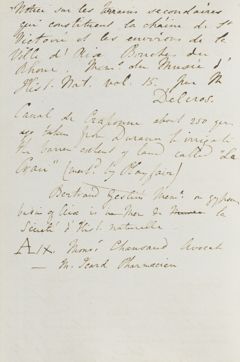 Notice sur les terrains secondaires
qui constituent la chaine de Ste
Victoire et les environs de la
Ville d'Aix Bouches du
Rhone. Mem.s du Musée d'
Hist. Nat. vol. 15. par M
Delcros.
Canal de Craponne about 250 yrs
ago taken from Durance to irrigate
the barren extent of land called "La
Crau" (made by Playfair)
Bertrand Geslin's Mem. on gypseous
basin of Aix is in Mem de la
Société d'Hist. naturelle.
Aix. Mons.r Chansaud Avocat
— M. Icard Pharmacien